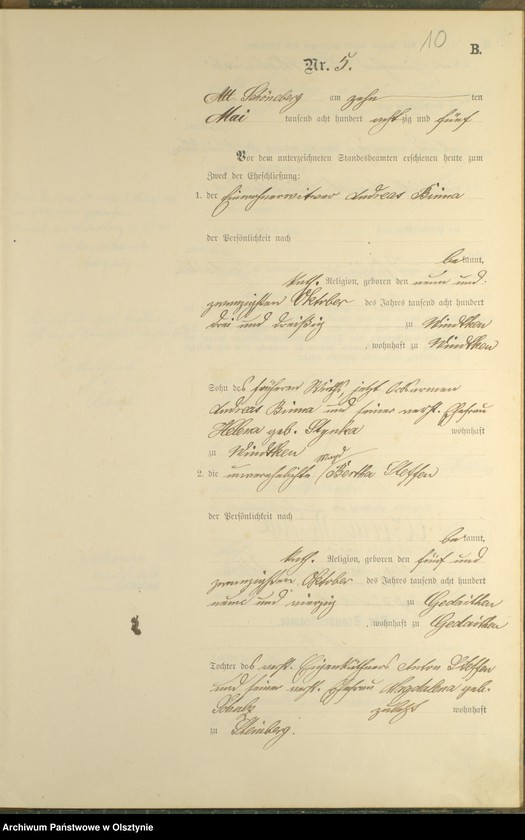 10
B.
Nr. 5.
Alt Schöneberg am zehn ten
Mai tausend acht hundert achtzig und fünf
Vor dem unterzeichneten Standesbeamten erschienen heute zum
Zweck der Eheschließung:
1. der Einwohnerwitwer Andreas Binna
der Persönlichkeit nach
bekannt,
kath. Religion, geboren den neun und
zwanzigsten Oktober des Jahres tausend acht hundert
drei und dreißig zu Windtken
, wohnhaft zu Windtken
Sohn des früheren Wirths, jetzt Ortsarmen
Andreas Binna und seiner verst. Ehefrau
Helena geb. wohnhaft
zu Windtken
2. die unverehelichte Magd Bertha Steffen
der Persönlichkeit nach
bekannt,
kath. Religion, geboren den fünf und
zwanzigsten Oktober des Jahres tausend acht hundert
neun und vierzig zu Gedaithen
, wohnhaft zu Gedaithen
Tochter des verst. Eigenkäthners Anton Steffen
und seiner verst. Ehefrau Magdalena geb.
Schulz zuletzt wohnhaft
zu Steinberg.
Archiwum Państwowe w Olsztynie